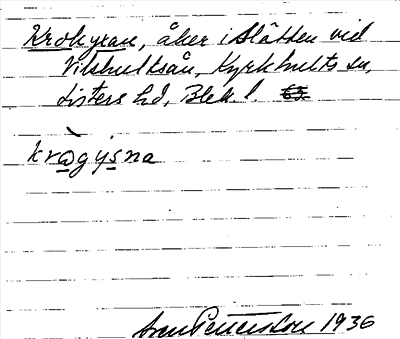 Krokyxan, åker i Slåtten vid
Vilshultsån, Kyrkhults sn,
Listers hd, Blek. l.
kràgysna
1936